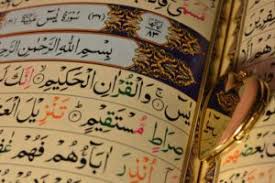 سُوْرَةُ يٰسٓ
٨٣
بِسْمِ اللهِ الرَّحْمٰنِ الرَّحِيْمِ
يٰسٓ وَالْقُرْاٰنِ الْحَكِيْمِ اِنَّكَ
صِرَاطٍ مُّسْتَقِيْمٍ تَنْزِيْلَ
اُنْذِرَ اٰبَآؤُهُمْ فَهُمْ